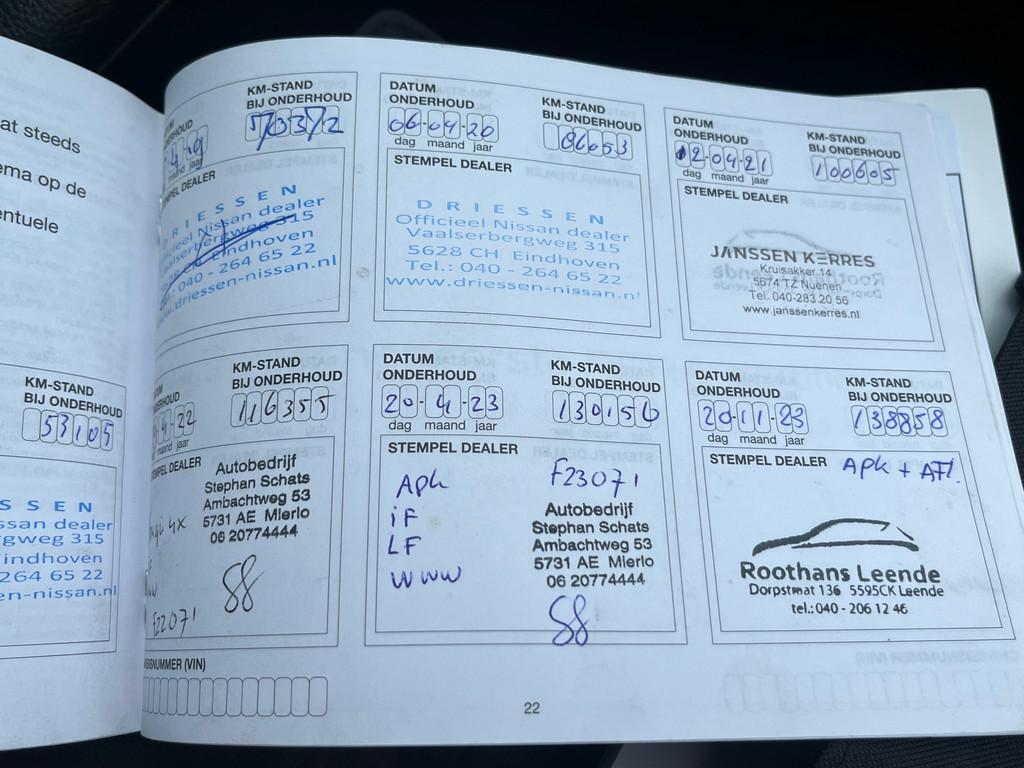 at steeds
ema op de
entuele
KM-STAND
BIJ ONDERHOUD
53105
SSEN
ssan dealer
gweg 315
indhoven
264 65 22
en-nissan.nl
KM-STAND
BIJ ONDERHOUD
70372
jaar
STEMPEL DEALER
DRIESSEN
Officieel Nissan dealer
Vaalserbergweg 315
5628 CH Eindhoven
040 - 264 65 22
www.driessen-nissan.nl
DATUM
ONDERHOUD
06-04-20
dag maand jaar
KM-STAND
BIJ ONDERHOUD
86053
STEMPEL DEALER
DRIESSEN
Officieel Nissan dealer
Vaalserbergweg 315
5628 CH Eindhoven
Tel.: 040 - 264 65 22
www.driessen-nissan.nl
DATUM
ONDERHOUD
02-04-21
dag maand jaar
KM-STAND
BIJ ONDERHOUD
100605
STEMPEL DEALER
JANSSEN KERRES
Kruisakker 14
5674 TZ Nuenen
Tel. 040-283 20 56
www.janssenkerres.nl
KM-STAND
BIJ ONDERHOUD
4-22
116355
jaar
STEMPEL DEALER
Autobedrijf
Stephan Schats
Ambachtweg 53
5731 AE Mierlo
06 20774444
4x
SS
F22071
DATUM
ONDERHOUD
20-4-23
dag maand jaar
KM-STAND
BIJ ONDERHOUD
130156
STEMPEL DEALER
APK
F23071
iF
LF
WWW
Autobedrijf
Stephan Schats
Ambachtweg 53
5731 AE Mierlo
06 20774444
SS
DATUM
ONDERHOUD
20-11-23
dag maand jaar
KM-STAND
BIJ ONDERHOUD
138858
STEMPEL DEALER
APK + Afl.
Roothans Leende
Dorpstraat 136 5595CK Leende
tel.: 040 - 206 12 46
SSISNUMMER (VIN)
22